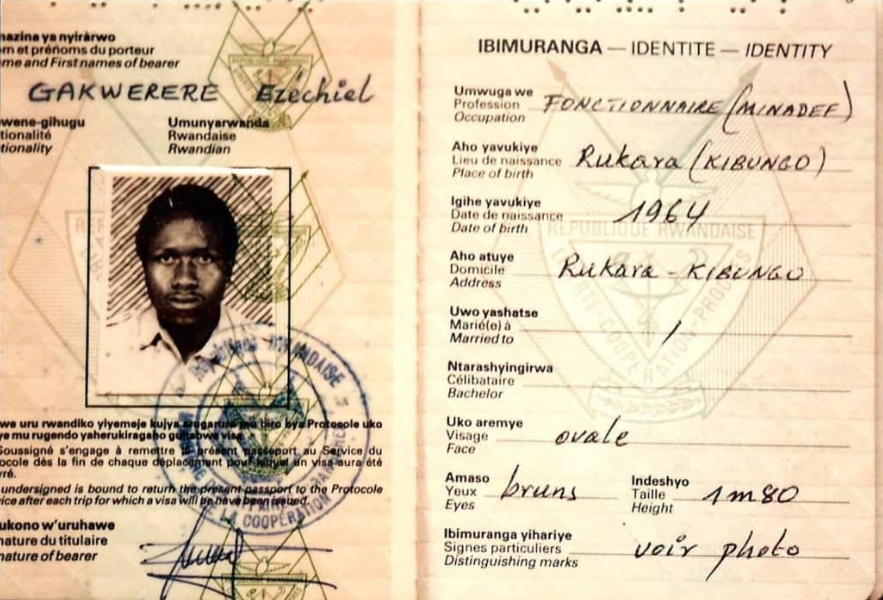 mazina ya nyirárwo
om et prénoms du porteur
me and First names of bearer
GAKWERERE Ezéchiel
wene-gihugu
tionalité
tionality
Umunyarwanda
Rwandaise
Rwandian
we uru rwandiko yiyemeje kujya arugarura mu biro bya Protocole uko
ye mu rugendo yaherukiragaho guhabwa visa.
Soussigné s'engage à remettre le présent passeport au Service du
ocole dès la fin de chaque déplacement pour lequel un visa aura été
vré.
undersigned is bound to return the present passport to the Protocole
vice after each trip for which a visa will be have been issued.
ukono w'uruhawe
nature du titulaire
nature of bearer
IBIMURANGA — IDENTITE — IDENTITY
Umwuga we
Profession
Occupation
FONCTIONNAIRE (MINADEF)
Aho yavukiye
Lieu de naissance
Place of birth
Rukara (KIBUNGO)
Igihe yavukiye
Date de naissance
Date of birth
1964
Aho atuye
Domicile
Address
Rukara - KIBUNGO
Uwo yashatse
Marié(e) à
Married to
/
Ntarashyingirwa
Célibataire
Bachelor
Uko aremye
Visage
Face
ovale
Amaso
Yeux
Eyes
bruns
Indeshyo
Taille
Height
1m80
Ibimuranga yihariye
Signes particuliers
Distinguishing marks
voir photo
REPUBLIQUE RWANDAISE
LIBERTE - COOPERATION - PROGRES
LA COOPERATION